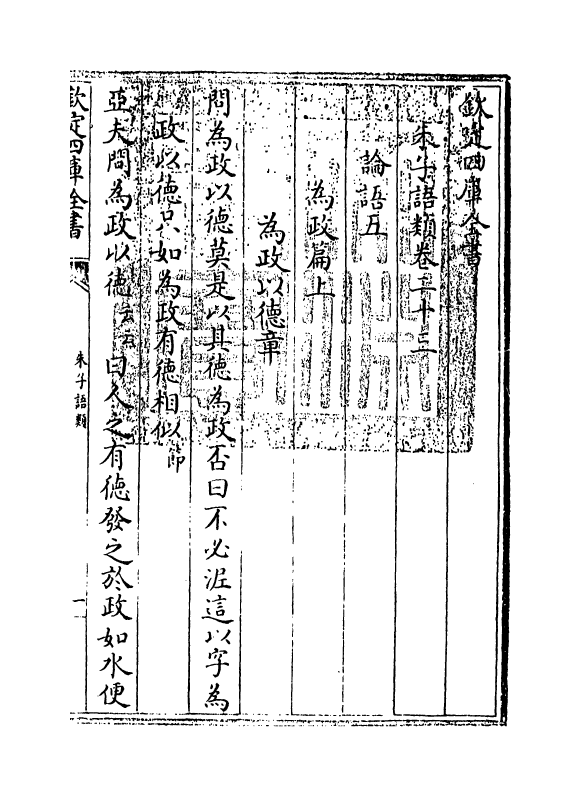 欽定四庫全書
朱子語類卷二十三
論語五
為政篇上
為政以德章
問為政以德莫是以其德為政否曰不必泥這以字為
政以德只如為政有德相似節
亞夫問為政以徳云云曰人之有徳發之於政如水便
欽定四庫全書
朱子語類
一